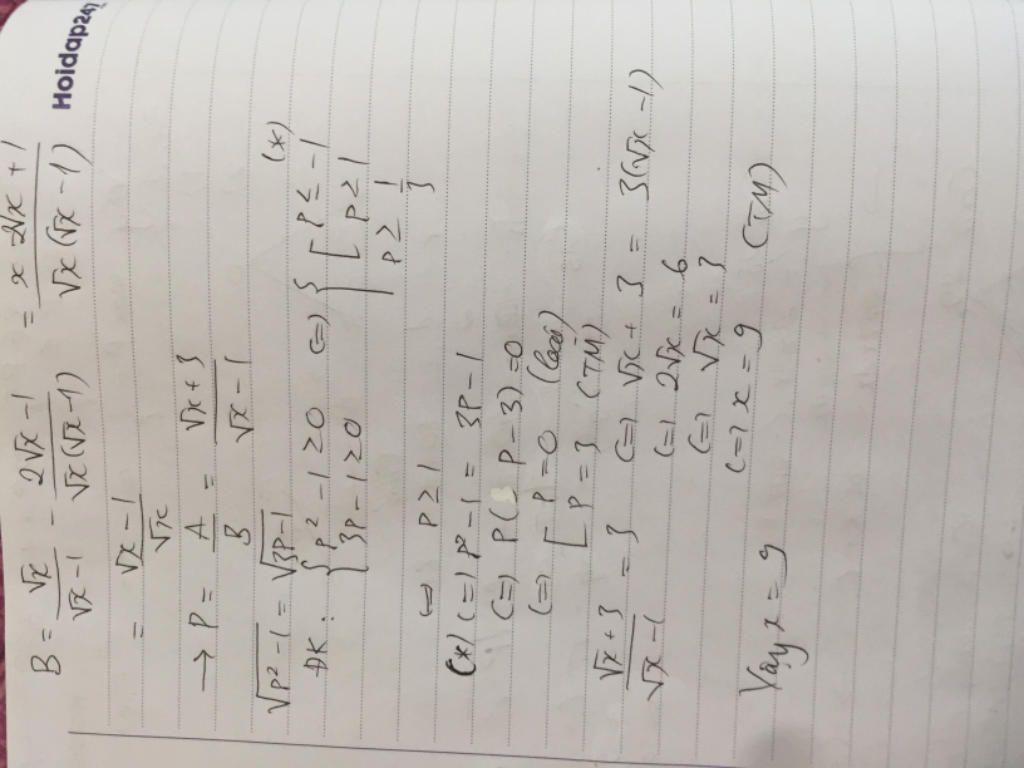 Hoidap247
B = √x/(√x - 1) - (2√x - 1)/(√x(√x - 1)) = (x - 2√x + 1)/(√x(√x - 1))
= (√x - 1)/√x
→ P = A/B = (√x + 3)/(√x - 1)
√(P² - 1) = √(3P - 1) (*)
ĐK: { P² - 1 ≥ 0 (=) { [ P ≤ -1
{ 3P - 1 ≥ 0 [ P ≥ 1
P ≥ 1/3
(=) P ≥ 1
(*) (=) P² - 1 = 3P - 1
(=) P(P - 3) = 0
(=) [ P = 0 (loại)
[ P = 3 (TM)
(√x + 3)/(√x - 1) = 3 (=) √x + 3 = 3(√x - 1)
(=) 2√x = 6
(=) √x = 3
(=) x = 9 (TM)
Vậy x = 9